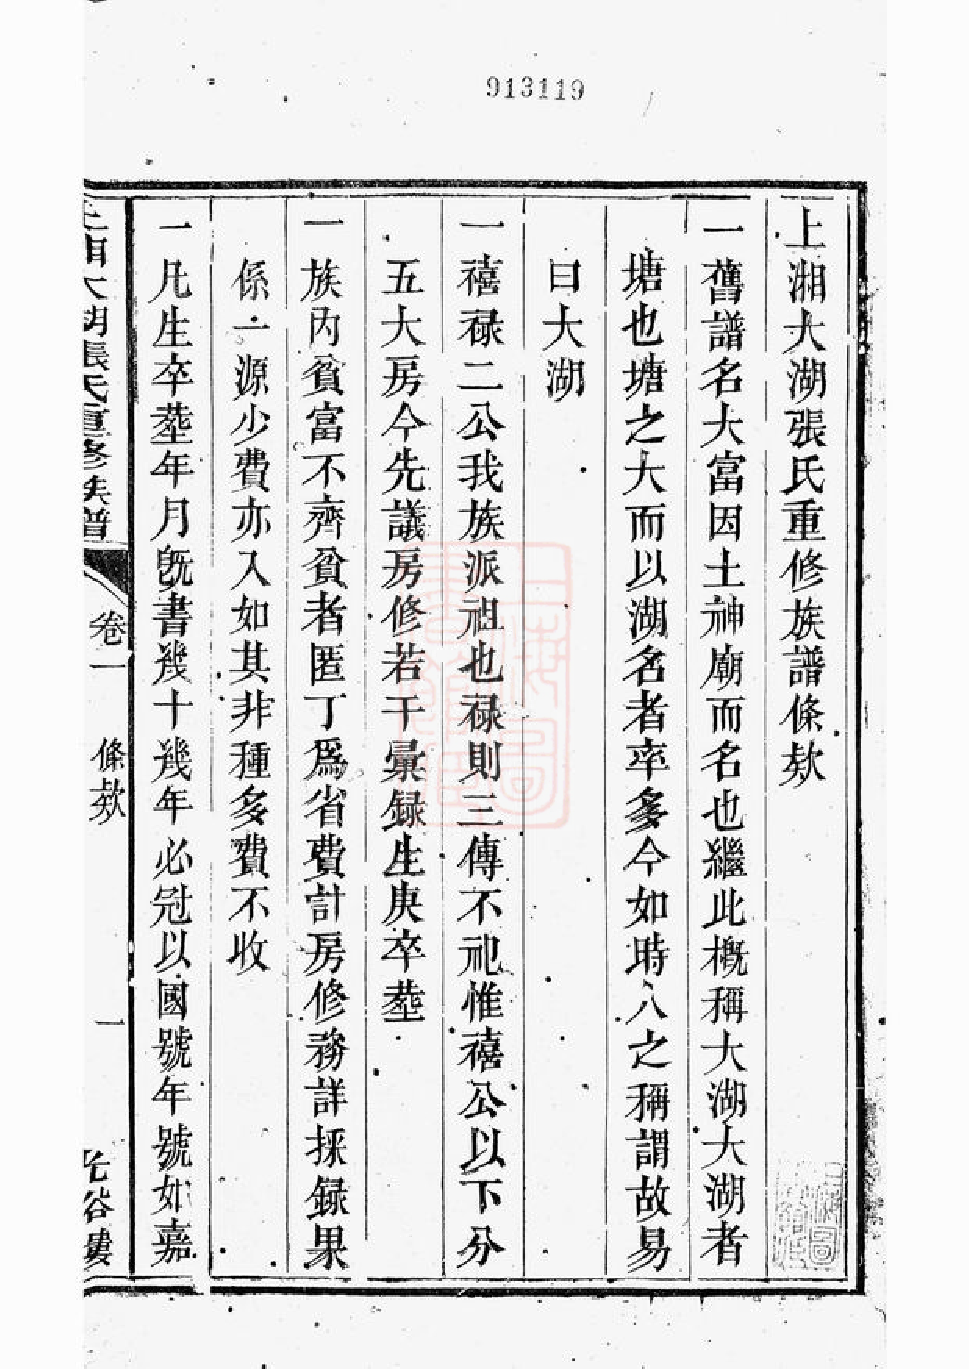 913119
上湘大湖張氏重修族譜條欵
一舊譜名大富因土神廟而名也繼此槪稱大湖大湖者
塘也塘之大而以湖名者率多今如時人之稱謂故易
曰大湖
一禧禄二公我族派祖也禄則三傳不祀惟禧公以下分
五大房今先議房修若干彙録生庚卒塟
一族內貧富不齊貧者匿丁爲省費計房修務詳採録果
係一源少費亦入如其非種多費不收
一凡生卒塟年月旣書幾十幾年必冠以國號年號如嘉
上湘大湖張氏重修族譜
卷一
條欵
一